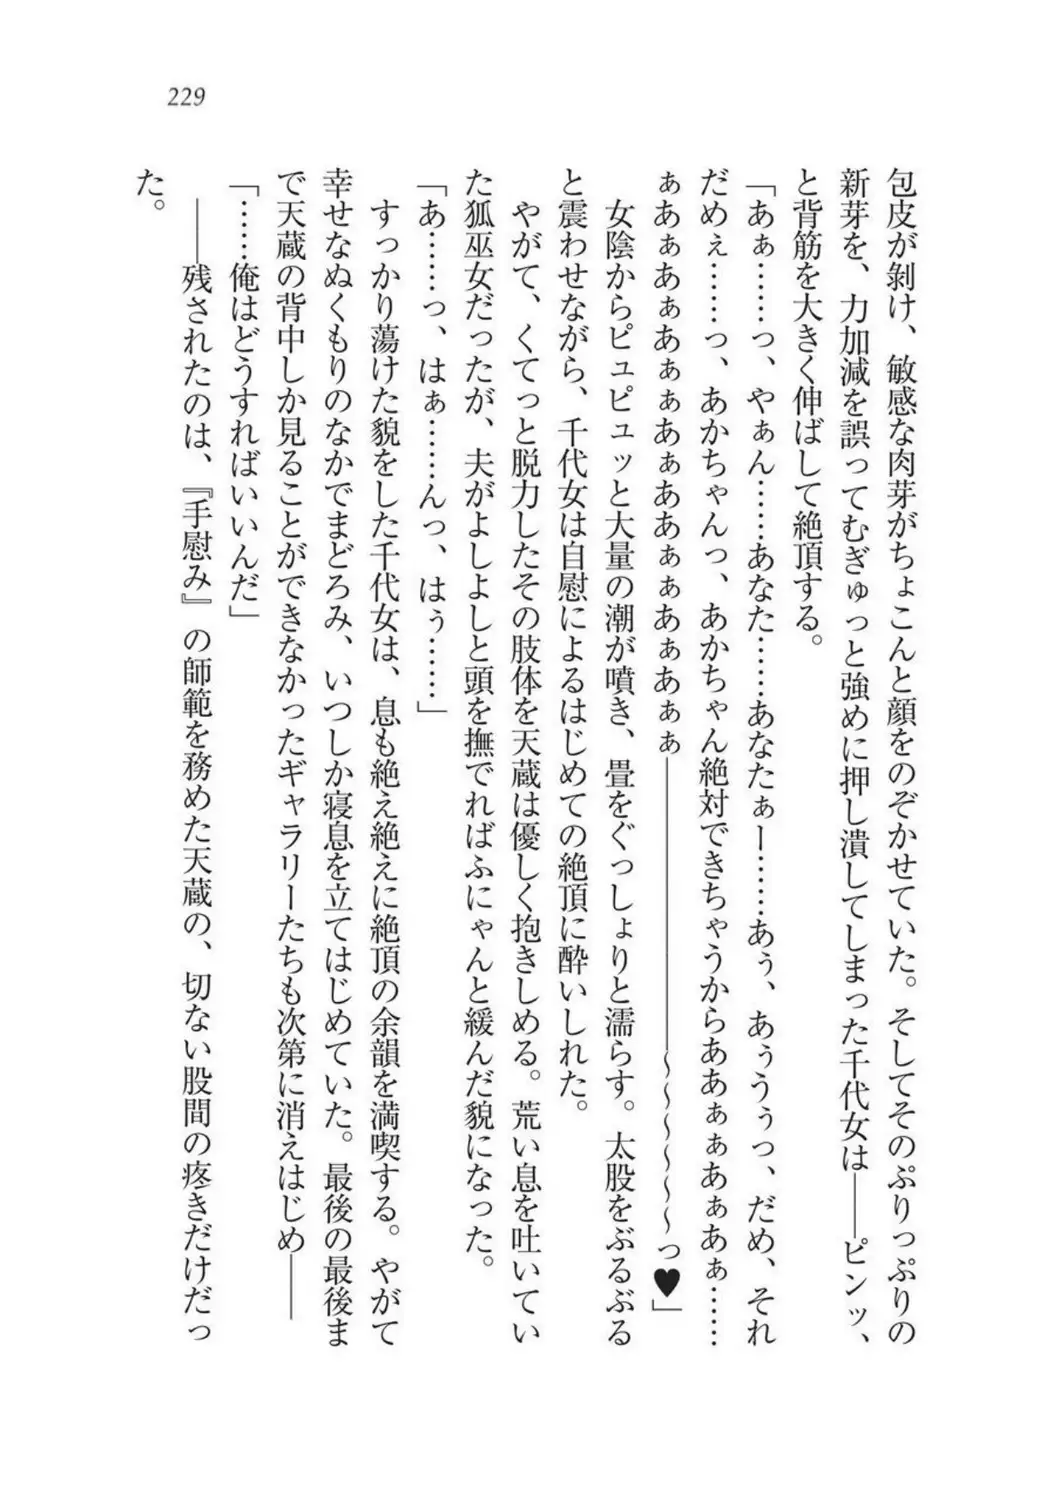 229
包皮が剝け、敏感な肉芽がちょこんと顔をのぞかせていた。そしてそのぷりっぷりの
新芽を、力加減を誤ってむぎゅっと強めに押し潰してしまった千代女は――ピンッ、
と背筋を大きく伸ばして絶頂する。
「あぁ……っ、やぁん……あなた……あなたぁー……あぅ、あぅうぅっ、だめ、それ
だめぇ……っ、あかちゃんっ、あかちゃん絶対できちゃうからああぁぁあぁあぁ……
ぁあぁあぁあぁぁあぁああぁぁあぁあぁぁ――――――――～～～～～～っ♥」
　女陰からピュピュッと大量の潮が噴き、畳をぐっしょりと濡らす。太股をぶるぶる
と震わせながら、千代女は自慰によるはじめての絶頂に酔いしれた。
　やがて、くてっと脱力したその肢体を天蔵は優しく抱きしめる。荒い息を吐いてい
た狐巫女だったが、夫がよしよしと頭を撫でればふにゃんと緩んだ貌になった。
「あ……っ、はぁ……んっ、はぅ……」
　すっかり蕩けた貌をした千代女は、息も絶え絶えに絶頂の余韻を満喫する。やがて
幸せなぬくもりのなかでまどろみ、いつしか寝息を立てはじめていた。最後の最後ま
で天蔵の背中しか見ることができなかったギャラリーたちも次第に消えはじめ――
「……俺はどうすればいいんだ」
　――残されたのは、『手慰み』の師範を務めた天蔵の、切ない股間の疼きだけだっ
た。